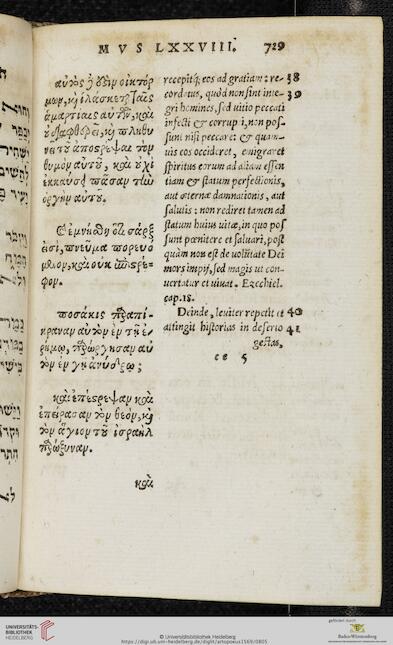 MVS LXXVIII. 729
αὐτὸς δέ ἐστιν οἰκτίρ
μων, καὶ ἱλάσκεται ταῖς
ἁμαρτίαις αὐτῶν, καὶ
οὐ διαφθερεῖ, καὶ πληθυ
νεῖ τοῦ ἀποστρέψαι τὸν
θυμὸν αὐτοῦ, καὶ οὐχὶ
ἐκκαύσει πᾶσαν τὴν
ὀργὴν αὐτοῦ.
Καὶ ἐμνήσθη ὅτι σάρξ
εἰσι, πνεῦμα πορευό
μενον, καὶ οὐκ ἐπιστρέ=
φον.
ποσάκις παρεπί=
κραναν αὐτὸν ἐν τῇ ἐ=
ρήμῳ, παρώργησαν αὐ
τὸν ἐν γῇ ἀνύδρῳ;
καὶ ἐπέστρεψαν καὶ
ἐπείρασαν τὸν θεὸν, καὶ
τὸν ἅγιον τοῦ ἰσραὴλ
παρώξυναν.
καὶ
recepitq; eos ad gratiam: re- 38
cordatus, quòd non sint inte- 39
gri homines, sed vitio peccati
infecti & corrupti, non pos-
sunt nisi peccare: & quam-
uis eos occideret, emigraret
spiritus eorum ad aliam essen
tiam & statum perfectionis,
aut æternæ damnationis, aut
salutis: non rediret tamen ad
statum huius vitæ, in quo pos
sunt pœnitere et saluari, post
quàm non est de volūtate Dei
mors impij, sed magis ut con-
uertatur et viuat. Ezechiel.
cap. 18.
Deinde, leuiter repetit et 40
attingit historias in deserto 41
gestas,
cc 5
UNIVERSITÄTS-
BIBLIOTHEK
HEIDELBERG
© Universitätsbibliothek Heidelberg
https://digi.ub.uni-heidelberg.de/diglit/artopoeus1569/0805
gefördert durch
Baden-Württemberg